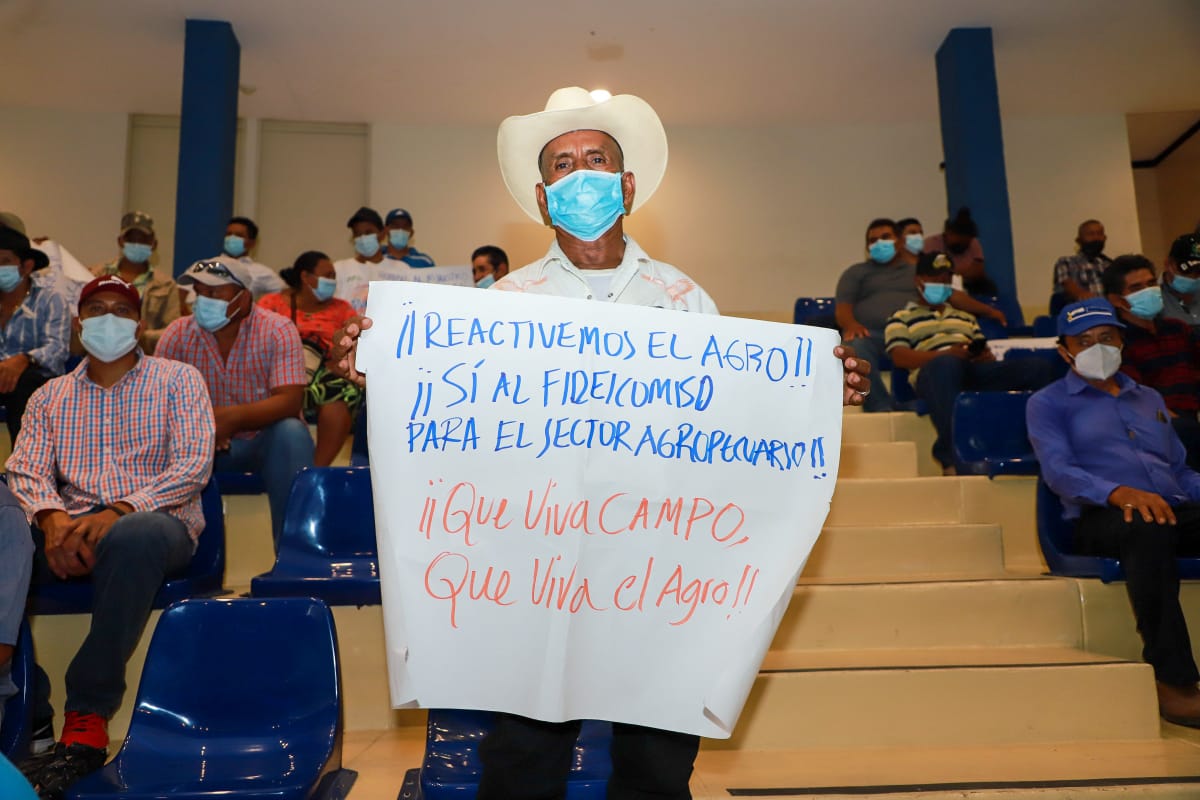 ¡¡REACTIVEMOS EL AGRO!!
¡¡SÍ AL FIDEICOMISO
PARA EL SECTOR AGROPECUARIO!!
¡¡Que Viva CAMPO,
Que Viva el Agro!!